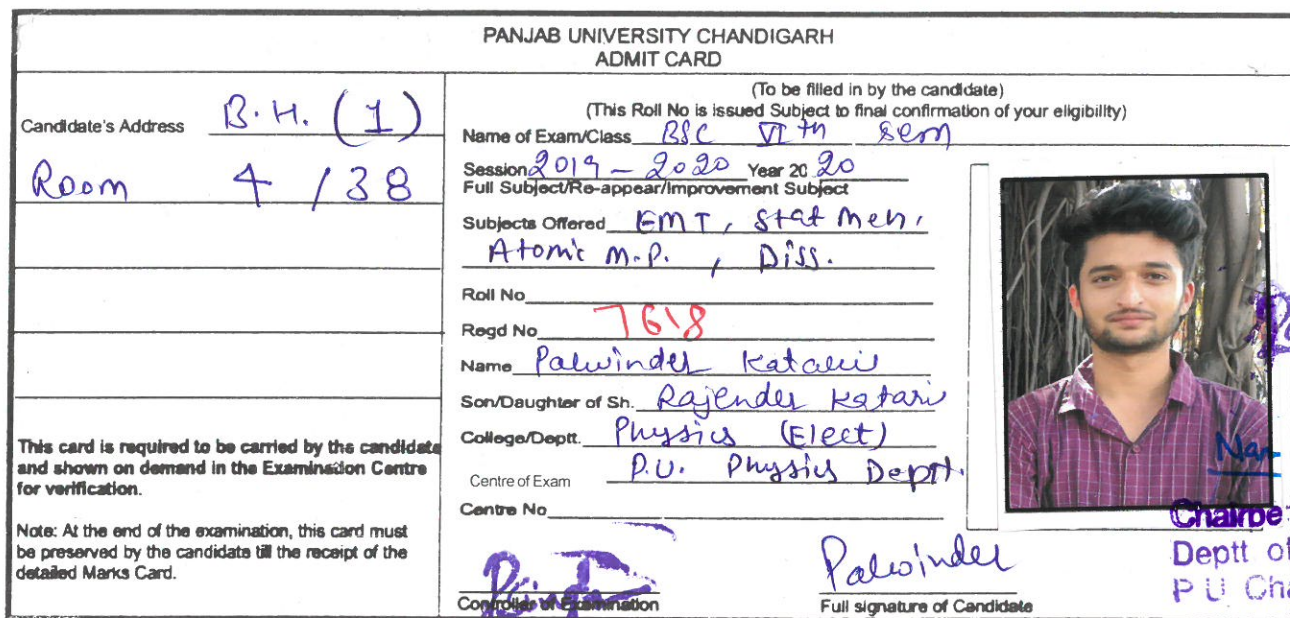 PANJAB UNIVERSITY CHANDIGARH
ADMIT CARD
Candidate's Address B.H. (1)
Room 4 / 38
This card is required to be carried by the candidate
and shown on demand in the Examination Centre
for verification.
Note: At the end of the examination, this card must
be preserved by the candidate till the receipt of the
detailed Marks Card.
(To be filled in by the candidate)
(This Roll No is issued Subject to final confirmation of your eligibility)
Name of Exam/Class BSC VI th sem
Session 2019 - 2020 Year 20 20
Full Subject/Re-appear/Improvement Subject
Subjects Offered EMT, Stat Meh,
Atomic M.P. , Diss.
Roll No
Regd No 7618
Name Palwinder Katari
Son/Daughter of Sh. Rajender Katari
College/Deptt. Physics (Elect)
Centre of Exam P.U. Physics Deptt.
Centre No
Controller of Examination
Palwinder
Full signature of Candidate
Nar
Chairpe
Deptt of
P U Cha